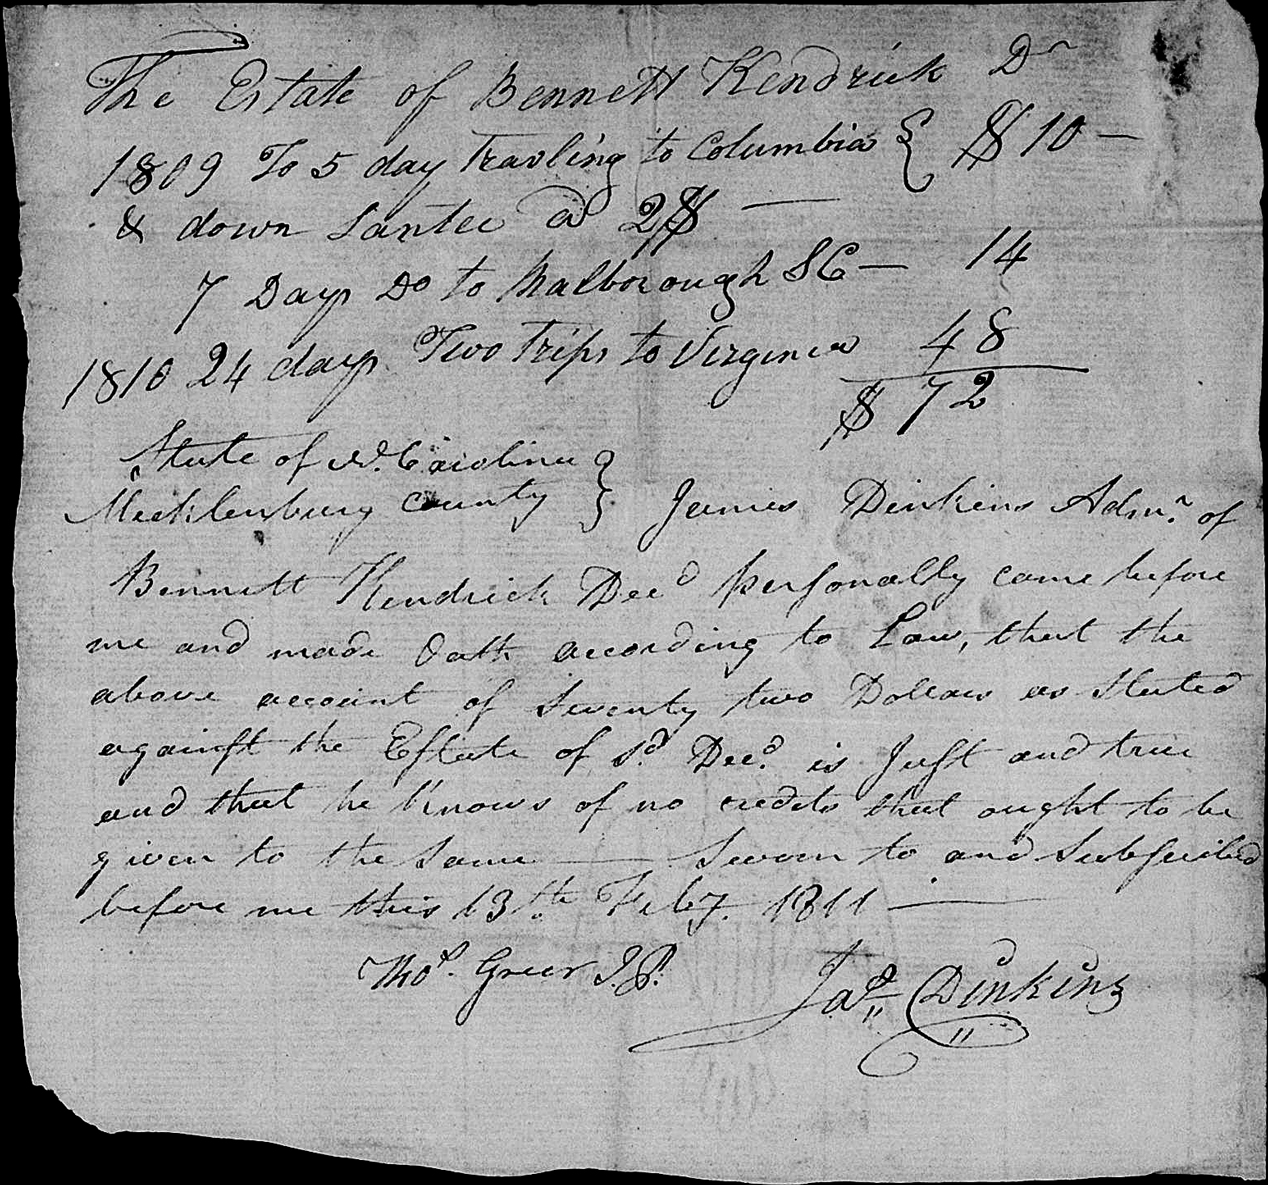 The Estate of Bennett Kendrick Dr
1809 To 5 day Travling to Columbia } $10 —
& down Santee @ 2$ —
7 Days Do to Malborough SC — 14
1810 24 days Two Trips to Virginia 48
$ 72
State of N. Carolina }
Mecklenburg County } James Dinkins Admr. of
Bennett Kendrick Decd personally came before
me and made Oath according to Law, that the
above account of Seventy two Dollars as Stated
against the Estate of sd. Decd. is Just and true
and that he knows of no credits that ought to be
given to the Same — Sworn to and Subscribed
before me this 13th Feby. 1811 —
Thos. Greer J.P.
Jas. Dinkins